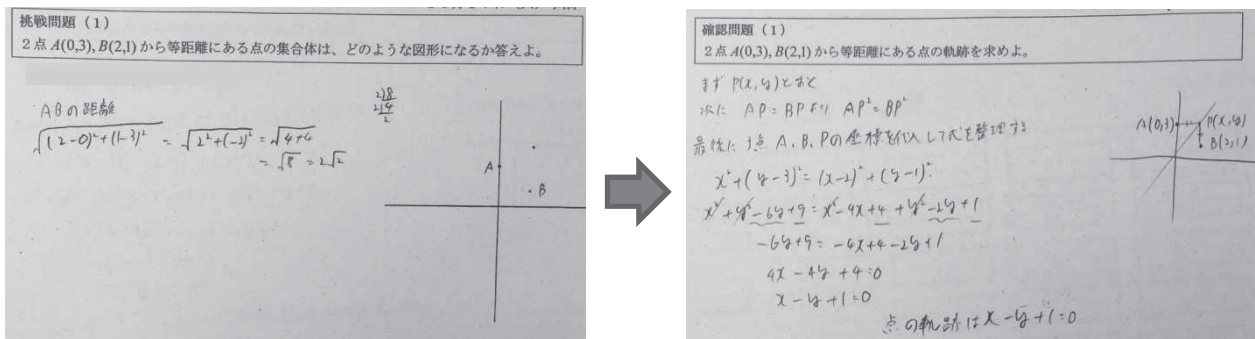 挑戦問題(1)
2点A(0,3), B(2,1)から等距離にある点の集合体は、どのような図形になるか答えよ。
ABの距離
√(2-0)²+(1-3)² = √2²+(-2)² = √4+4
= √8 = 2√2
2)8
2)4
2
A
B
確認問題(1)
2点A(0,3), B(2,1)から等距離にある点の軌跡を求めよ。
まず P(x,y)とおく
次に AP=BPより AP²=BP²
最後に 3点 A、B、Pの座標を代入して式を整理する
x²+(y-3)²=(x-2)²+(y-1)²
x²+y²-6y+9=x²-4x+4+y²-2y+1
-6y+9=-4x+4-2y+1
4x-4y+4=0
x-y+1=0
点の軌跡はx-y+1=0
A(0,3)
P(x,y)
B(2,1)